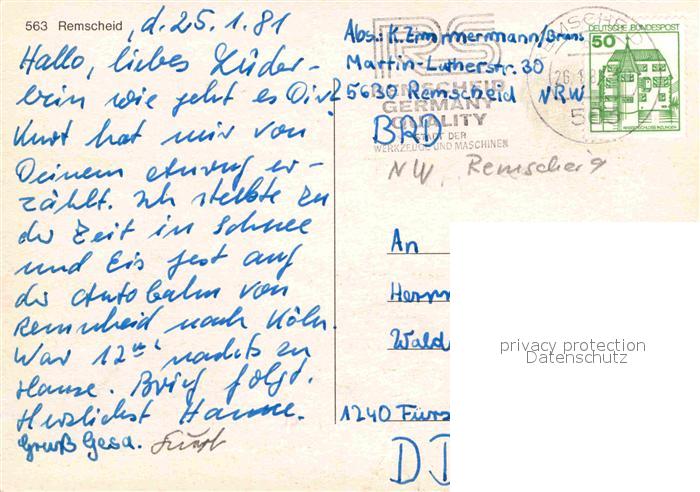 563 Remscheid , d. 25.1.81
Hallo, liebes Lüder-
lein wie geht es Dir?
Kurt hat mir von
Deinem Anruf er-
zählt. Ich steckte zu
der Zeit in Schnee
und Eis fest auf
der Autobahn von
Remscheid nach Köln.
War 12 nachts zu
Hause. Brief folgt.
Herzlichst Hanne.
Gruß Gesa. Kurt
Abs.: K. Zimmermann/Bruns
Martin-Lutherstr. 30
5630 Remscheid NRW
BRD
NW, Remscheid
RS
REMSCHEID
GERMANY
QUALITY
STADT DER
WERKZEUGE UND MASCHINEN
REMSCHEID
26.1.8
DEUTSCHE BUNDESPOST
50
WASSERSCHLOSS INZLINGEN
An
Herrn
Wald
1240 Fürs
DD
privacy protection
Datenschutz